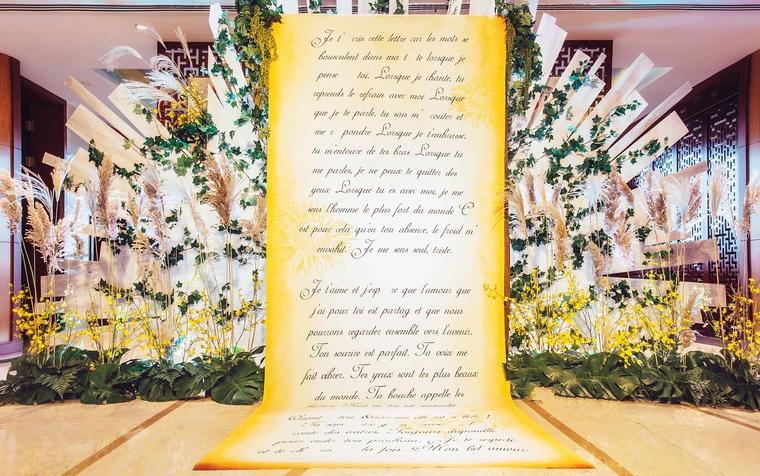 Je t' cris cette lettre car les mots se
bousculent dans ma t te lorsque je
pense toi. Lorsque je chante, tu
reprends le refrain avec moi Lorsque
que je te parle, tu sais m' couter et
me r pondre Lorsque je t'embrasse,
tu m'entoure de tes bras Lorsque tu
me parles, je ne peux te quitter des
yeux Lorsque tu es avec moi, je me
sens l'homme le plus fort du monde C'
est pour cela qu'en ton absence, le froid m'
envahit. Je me sens seul, triste.
Je t'aime et j'esp re que l'amour que
j'ai pour toi est partag et que nous
pourrons regarder ensemble vers l'avenir.
Ton sourire est parfait. Ta voix me
fait vibrer. Tes yeux sont les plus beaux
du monde. Ta bouche appelle les
toute des autres. Toujours disponible
pour aider ton prochain. Je te respecte
et te la fois. Mon bel amour.